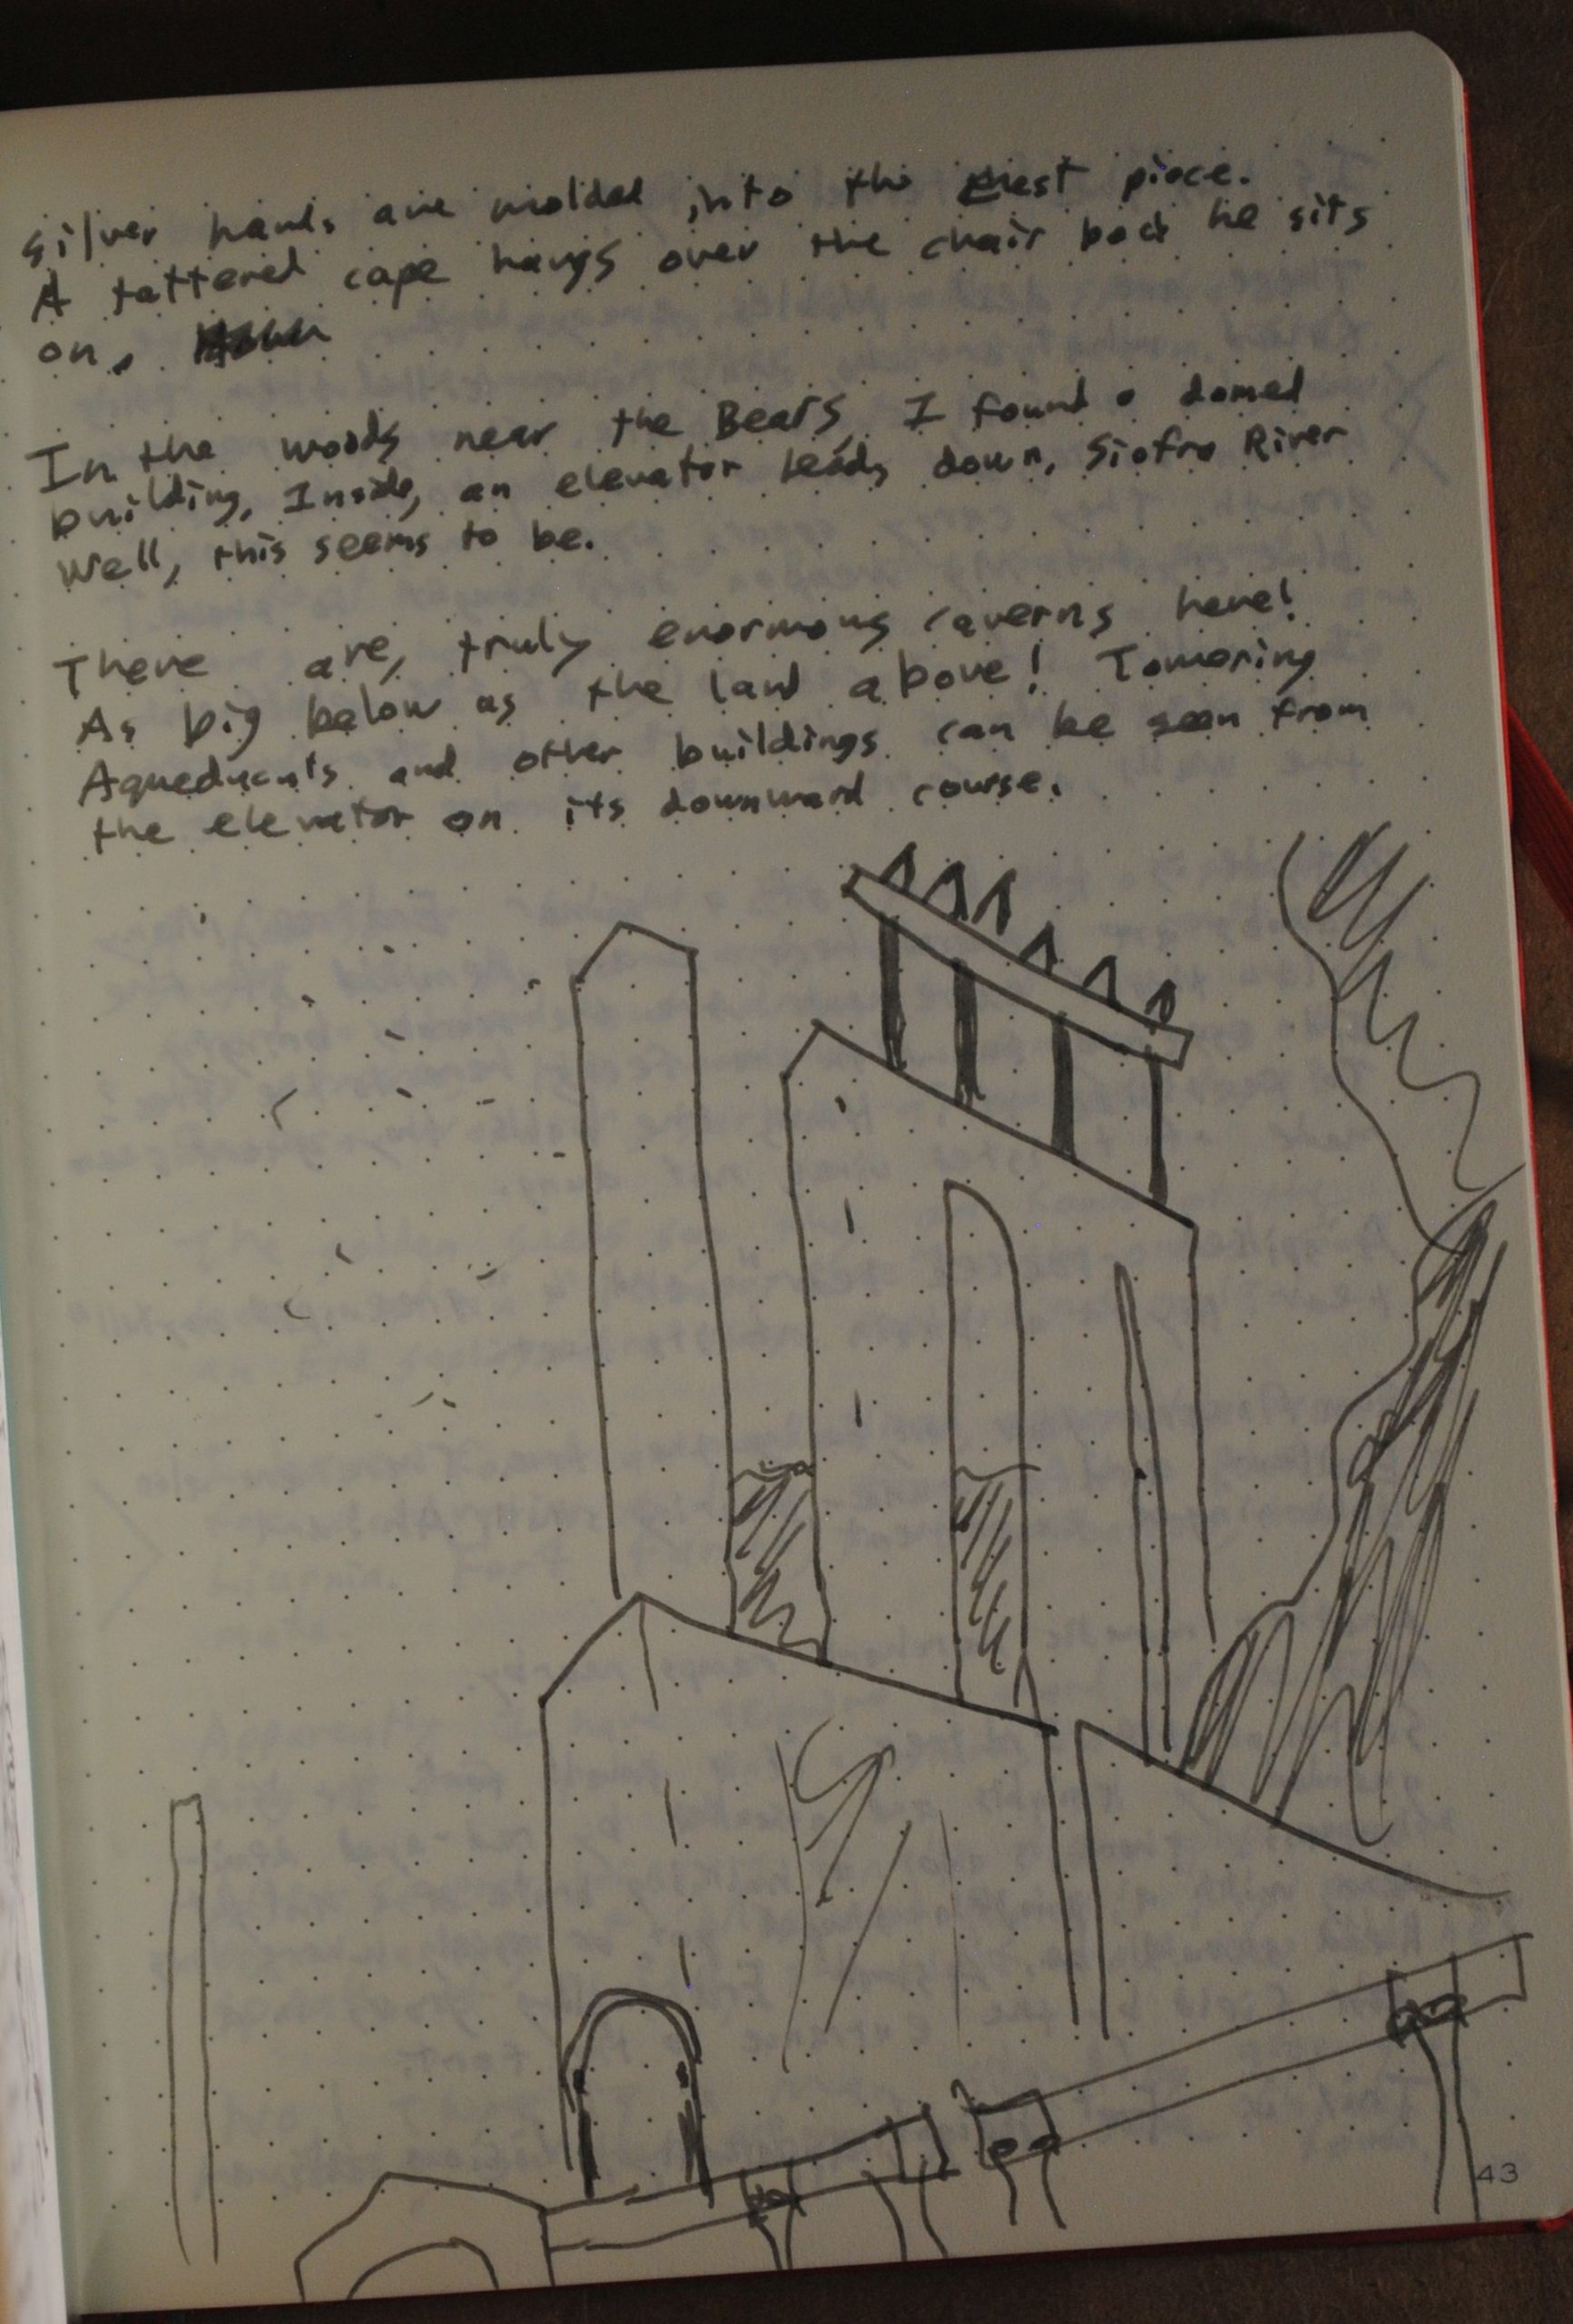 Silver hands are molded into the chest piece.
A tattered cape hangs over the chair back he sits
on.
In the woods near the Bears, I found a domed
building. Inside, an elevator leads down. Siofra River
Well, this seems to be.
There are, truly enormous caverns here!
As big below as the land above! Towering
Aqueducts and other buildings can be seen from
the elevator on its downward course.
43